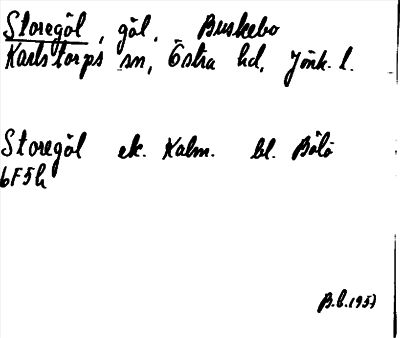 Storegöl, göl. Buskebo
Karlstorps sn, Östra hd, Jönk. l.
Storegöl ek. Kalm. bl. Bölö
6F5h
B.L. 1957